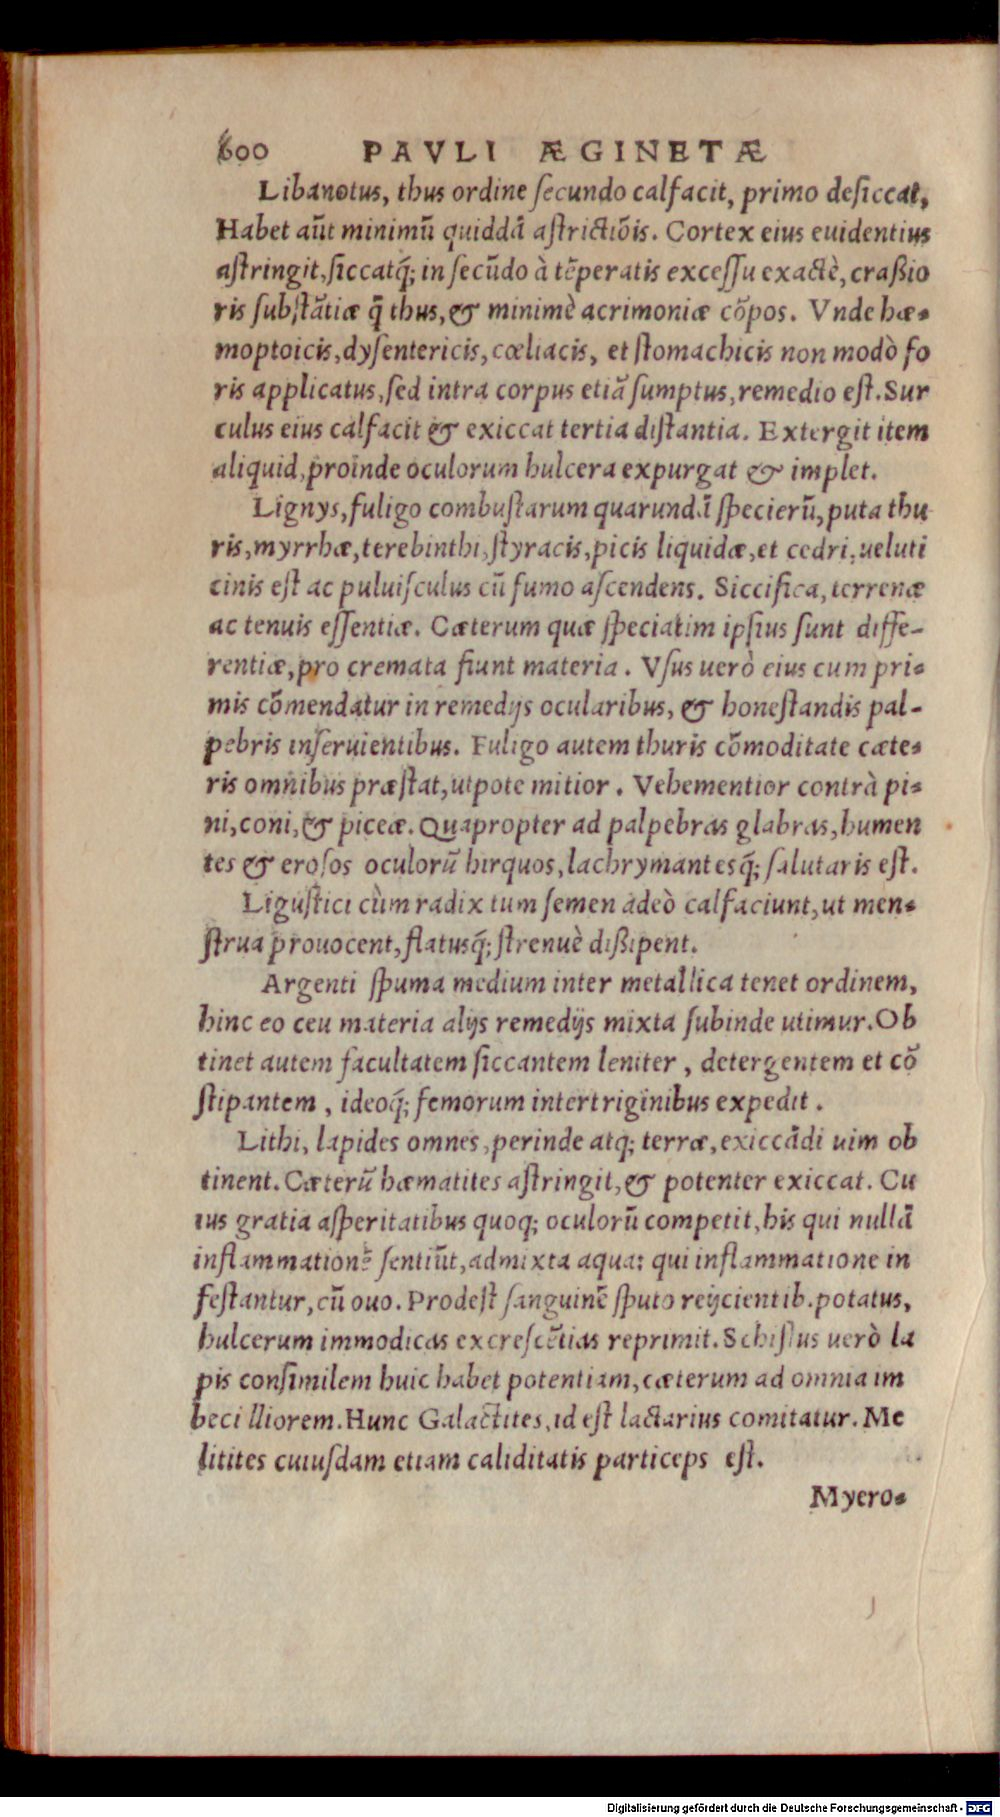 600 PAVLI ÆGINETÆ
Libanotus, thus ordine ſecundo calfacit, primo deſiccat,
Habet aūt minimū quiddā aſtrictiōis. Cortex eius euidentius
aſtringit, ſiccatq́; in ſecūdo à tēperatis exceſſu exactè, craßio
ris ſubſtātiæ q̄ thus, & minimè acrimoniæ cōpos. Vnde hæ-
moptoicis, dyſentericis, cœliacis, et ſtomachicis non modò fo
ris applicatus, ſed intra corpus etiā ſumptus, remedio eſt. Sur
culus eius calfacit & exiccat tertia diſtantia. Extergit item
aliquid, proinde oculorum hulcera expurgat & implet.
Lignys, fuligo combuſtarum quarundā ſpecierū, puta thu
ris, myrrhæ, terebinthi, ſtyracis, picis liquidæ, et cedri, ueluti
cinis eſt ac puluiſculus cū fumo aſcendens. Siccifica, terrenæ
ac tenuis eſſentiæ. Cæterum quæ ſpeciatim ipſius ſunt diffe-
rentiæ, pro cremata fiunt materia. Vſus uerò eius cum pri-
mis cōmendatur in remedijs ocularibus, & honeſtandis pal-
pebris inſeruientibus. Fuligo autem thuris cōmoditate cæte-
ris omnibus præſtat, utpote mitior. Vehementior contrà pi-
ni, coni, & piceæ. Quapropter ad palpebras glabras, humen
tes & eroſos oculorū hirquos, lachrymantesq́; ſalutaris eſt.
Liguſtici cùm radix tum ſemen adeò calfaciunt, ut men-
ſtrua prouocent, flatusq́; ſtrenuè dißipent.
Argenti ſpuma medium inter metallica tenet ordinem,
hinc eo ceu materia alijs remedijs mixta ſubinde utimur. Ob
tinet autem facultatem ſiccantem leniter, detergentem et cō
ſtipantem, ideoq́; femorum intertriginibus expedit.
Lithi, lapides omnes, perinde atq; terræ, exiccādi uim ob
tinent. Cæterū hæmatites aſtringit, & potenter exiccat. Cu
ius gratia aſperitatibus quoq; oculorū competit, his qui nullā
inflammationē ſentiūt, admixta aqua: qui inflammatione in
feſtantur, cū ouo. Prodeſt ſanguinē ſputo reijcientib. potatus,
hulcerum immodicas excreſcētias reprimit. Schiſtus uerò la
pis conſimilem huic habet potentiam, cæterum ad omnia im
becilliorem. Hunc Galactites, id eſt lactarius comitatur. Me
litites cuiuſdam etiam caliditatis particeps eſt.
Myero-
Digitalisierung gefördert durch die Deutsche Forschungsgemeinschaft - DFG